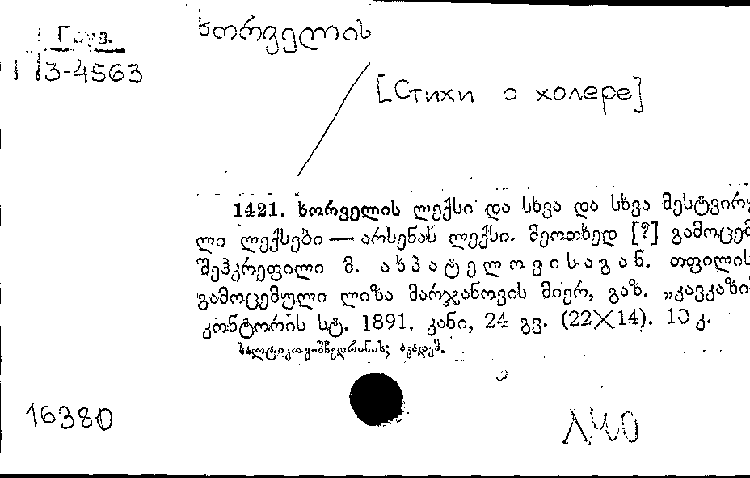 Груз.
13-4563
ხორველის
[Стихи о холере]
1421. ხორველის ლექსი და სხვა და სხვა მესტვირუ
ლი ლექსები — არსენას ლექსი. მეოთხედ [?] გამოცემ
შეჰკრეფილი ზ. ასპატელოვისაგან. თფილის
გამოცემული ლიზა მარჯანოვის მიერ, გაზ. „კავკაზი
კონტორის სტ. 1891. კანი, 24 გვ. (22×14). 10 კ.
16380